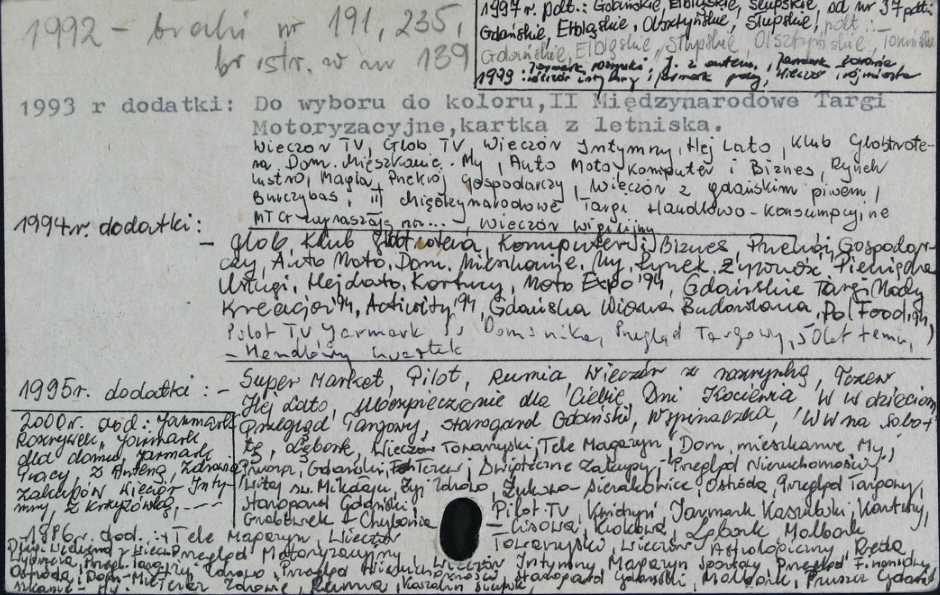 1992 - braki nr 191, 235,
br. str. w nr 139
1997 r. pdt.: Gdańskie, Elbląskie, Słupskie, od nr 37 pdt:
Gdańskie, Elbląskie, Olsztyńskie, Słupskie, pdt.:
Gdańskie, Elbląskie, Słupskie, Olsztyńskie,
Jarmark J. z anteną, Jarmark
1999: wieczór intymny, jarmark
1993 r dodatki: Do wyboru do koloru, II Międzynarodowe Targi
Motoryzacyjne, kartka z letniska.
Wieczór TV, Glob TV, Wieczór Intymny, Hej Lato, Klub Globtrote-
ra, Dom. Mieszkanie. My, Auto Moto, Komputer i Biznes, Rynek
Lustro, Magia, Przekrój Gospodarczy, Wieczór z gdańskim piwem,
Burczybas, III Międzynarodowe Targi Handlowo-Konsumpcyjne
MTCr zapraszają na..., Wieczór Wigilijny
1994 r. dodatki:
- Glob, Klub Globtrotera, Komputer i Biznes, Przekrój Gospodar-
czy, Auto Moto, Dom. Mieszkanie. My, Rynek, Żywność, Pieniądze
Usługi, Hej Lato, Kartusy, Moto Expo '94, Gdańskie Targi Mody
Kreacja '94, Activity '94, Gdańska Wiosna Budowlana, Pol Food '94,
Pilot TV, Jarmark Dominika, Przegląd Targowy, 50 lat temu,
- Handlowy kwartek
1995 r. dodatki: - Super Market, Pilot, Rumia, Wieczór z muzyką, Tczew
Hej Lato, Ubezpieczenie dla Ciebie, Dni Kociewia, W W dzieciom
Przegląd Targowy, Starogard Gdański, Wyprzedażka, WW na sobo-
tę, Lębork, Wieczór Towarzyski, Tele Magazyn, Dom, mieszkanie, My,
Gdański, Tczew, Świąteczne Zakupy, Przegląd Nieruchomości
Witaj św. Mikołaju, Żyj Zdrowo, Żukowo - Sierakowice, Ostróda, Przegląd Targowy,
Starogard Gdański, Pilot TV, Kwidzyn, Jarmark Kaszubski, Kartuzy,
Grabówek - Chylonia - Cisowa, Lębork, Malbork
2000 r. dod.: Jarmark
Rozrywek, Jarmark
dla domu, Jarmark
Pracy, z Anteną, Zdrowia
zakupów, Wieczór Inty-
mny, z krzyżówką, ----
1996 r. dod.: Tele Magazyn, Wieczór Towarzyski, Wieczór Astrologiczny, Reda,
Przegląd Motoryzacyjny, Wieczór Intymny, Magazyn Sportowy, Przegląd Finansowy,
Ostróda, Dom - Mie- Tczew, Zdrowie, Rumia, Starogard Gdański, Malbork, Pruszcz Gdański
szkanie - My.